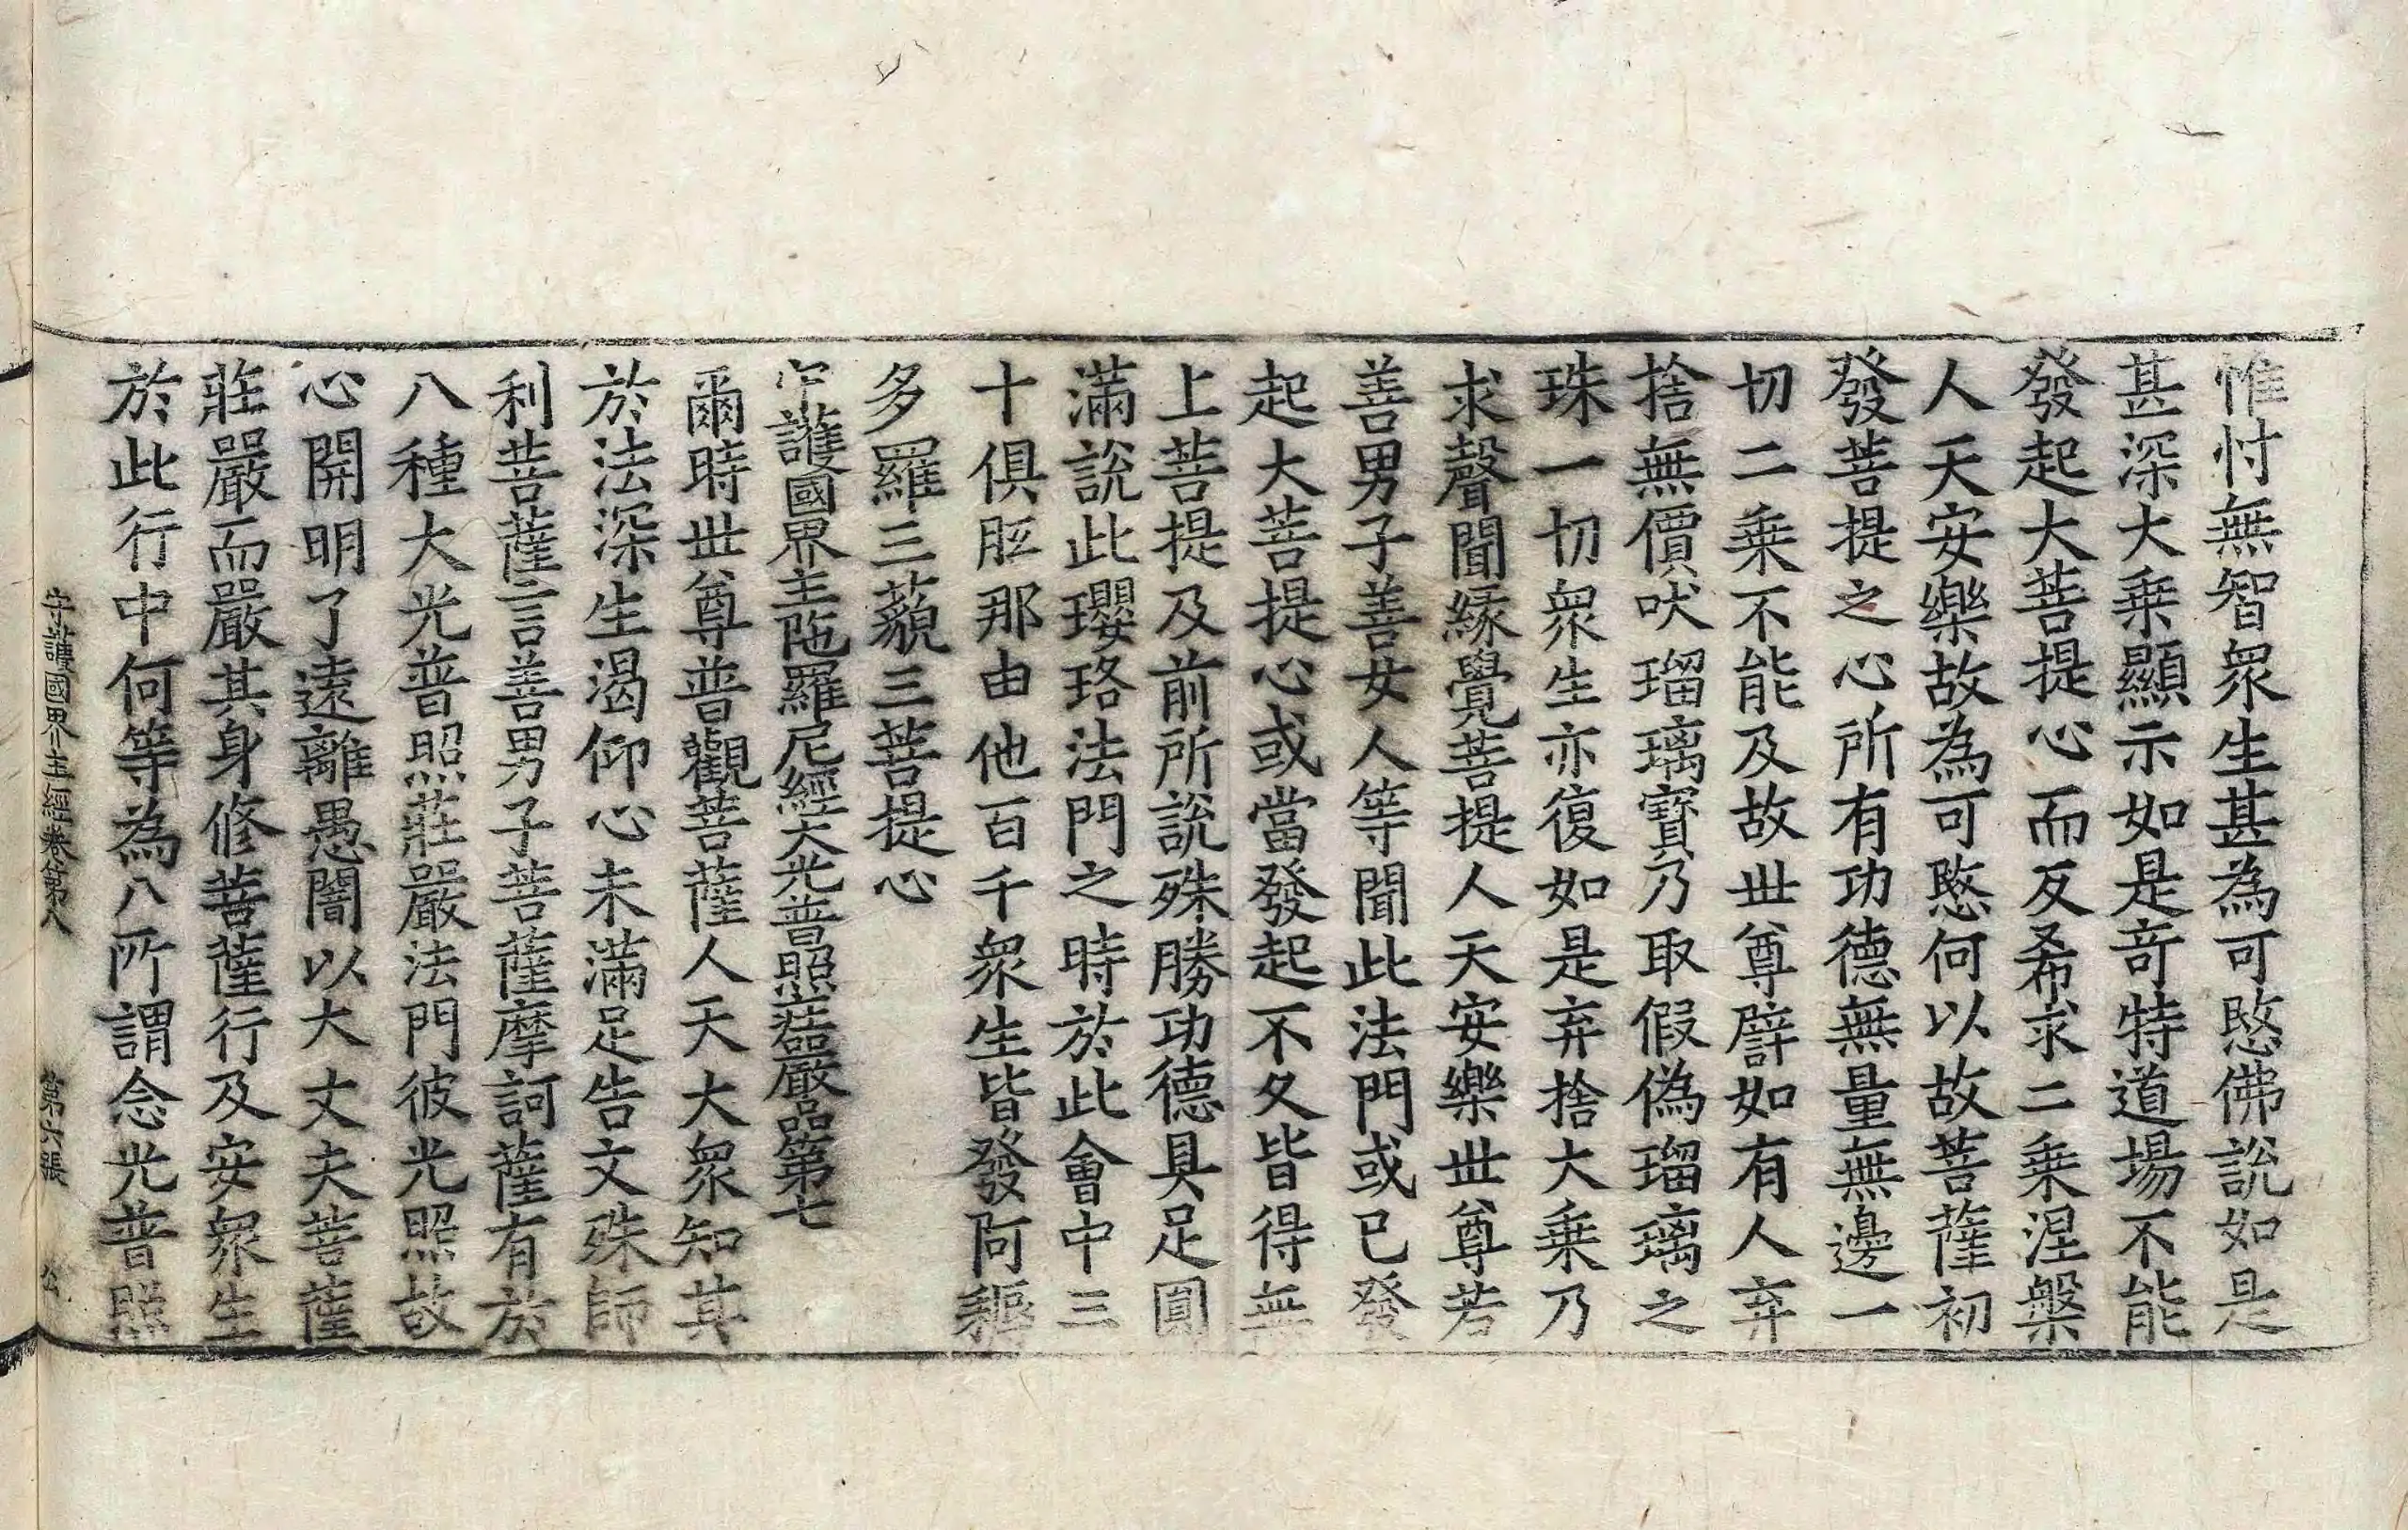 惟忖無智衆生甚為可愍佛說如是
甚深大乗顯示如是竒特道場不能
發起大菩提心而反希求二乗涅槃
人天安樂故為可愍何以故菩薩初
發菩提之心所有功德無量無邊一
切二乗不能及故世尊譬如有人弃
捨無價吠瑠璃寶乃取假偽瑠璃之
珠一切衆生亦復如是弃捨大乗乃
求聲聞緣覺菩提人天安樂世尊若
善男子善女人等聞此法門或已發
起大菩提心或當發起不久皆得無
上菩提及前所說殊勝功德具足圓
滿說此瓔珞法門之時於此會中三
十俱胝那由他百千衆生皆發阿耨
多羅三藐三菩提心
守護國界主陁羅尼經大光普照莊嚴品第七
爾時世尊普觀菩薩人天大衆知其
於法深生渴仰心未滿足告文殊師
利菩薩言善男子菩薩摩訶薩有於
八種大光普照莊嚴法門彼光照故
心開明了遠離愚闇以大丈夫菩薩
莊嚴而嚴其身修菩薩行及安衆生
於此行中何等為八所謂念光普照
守護國界主經卷第八 第六張 公